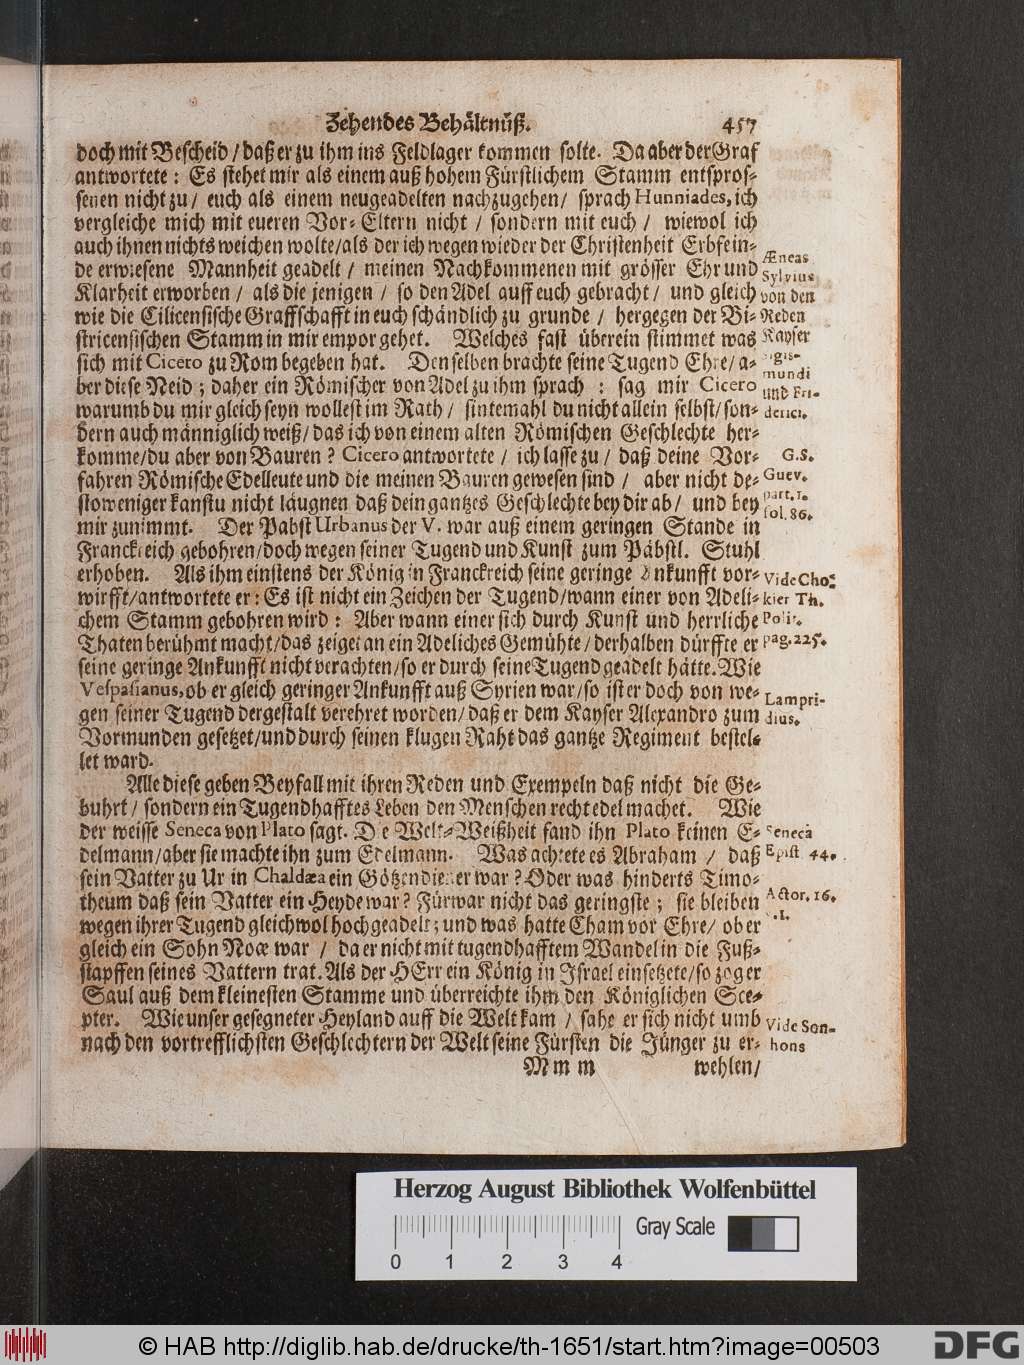 Zehendes Behältnüß. 457
doch mit Bescheid / daß er zu ihm ins Feldlager kommen solte. Da aber der Graf
antwortete: Es stehet mir als einem auß hohem Fürstlichem Stamm entspros-
senen nicht zu / euch als einem neugeadelten nachzugehen / sprach Hunniades, ich
vergleiche mich mit eueren Vor-Eltern nicht / sondern mit euch / wiewol ich
auch ihnen nichts weichen wolte / als der ich wegen wieder der Christenheit Erbfein-
de erwiesene Mannheit geadelt / meinen Nachkommenen mit grösser Ehr und
Klarheit erworben / als die jenigen / so den Adel auff euch gebracht / und gleich
wie die Cilicensische Graffschafft in euch schändlich zu grunde / hergegen der Bi-
stricensischen Stamm in mir empor gehet. Welches fast überein stimmet was
sich mit Cicero zu Rom begeben hat. Denselben brachte seine Tugend Ehre / a-
ber diese Neid; daher ein Römischer von Adel zu ihm sprach: sag mir Cicero
warumb du mir gleich seyn wollest im Rath / sintemahl du nicht allein selbst / son-
dern auch männiglich weiß / das ich von einem alten Römischen Geschlechte her-
komme / du aber von Bauren? Cicero antwortete / ich lasse zu / daß deine Vor-
fahren Römische Edelleute und die meinen Bauren gewesen sind / aber nicht de-
stoweniger kanstu nicht läugnen daß dein gantzes Geschlechte bey dir ab / und bey
mir zunimmt. Der Pabst Urbanus der V. war auß einem geringen Stande in
Franckreich gebohren / doch wegen seiner Tugend und Kunst zum Päbstl. Stuhl
erhoben. Als ihm einstens der König in Franckreich seine geringe Ankunfft vor-
wirfft / antwortete er: Es ist nicht ein Zeichen der Tugend / wann einer von Adeli-
chem Stamm gebohren wird: Aber wann einer sich durch Kunst und herrliche
Thaten berühmt macht / das zeiget an ein Adeliches Gemühte / derhalben dürffte er
seine geringe Ankunfft nicht verachten / so er durch seine Tugend geadelt hätte. Wie
Vespasianus, ob er gleich geringer Ankunfft auß Syrien war / so ist er doch von we-
gen seiner Tugend dergestalt verehret worden / daß er dem Kayser Alexandro zum
Vormunden gesetzet / und durch seinen klugen Raht das gantze Regiment bestel-
let ward.
Alle diese geben Beyfall mit ihren Reden und Exempeln daß nicht die Ge-
buhrt / sondern ein Tugendhafftes Leben den Menschen recht edel machet. Wie
der weisse Seneca von Plato sagt. Die Welt-Weißheit fand ihn Plato keinen E-
delmann / aber sie machte ihn zum Edelmann. Was achtete es Abraham / daß
sein Vatter zu Ur in Chaldæa ein Götzendiener war? Oder was hinderts Timo-
theum daß sein Vatter ein Heyde war? Fürwar nicht das geringste; sie bleiben
wegen ihrer Tugend gleichwol hoch geadelt; und was hatte Cham vor Ehre / ob er
gleich ein Sohn Noæ war / da er nicht mit tugendhafftem Wandel in die Fuß-
stapffen seines Vattern trat. Als der HErr ein König in Israel einsetzete / so zog er
Saul auß dem kleinesten Stamme und überreichte ihm den Königlichen Sce-
pter. Wie unser gesegneter Heyland auff die Welt kam / sahe er sich nicht umb
nach den vortrefflichsten Geschlechtern der Welt seine Fürsten die Jünger zu er-
Mmm wehlen /
Æneas
Sylvius
von den
Reden
Kayser
Sigis-
mundi
und Fri-
derici.
G.S.
Guev.
part. 1.
fol. 86.
Vide Cho-
kier Th.
Polit.
pag. 225.
Lampri-
dius.
Seneca
Epist. 44.
Actor. 16.
Vide Son-
hons
Herzog August Bibliothek Wolfenbüttel
Gray Scale
0 1 2 3 4
© HAB http://diglib.hab.de/drucke/th-1651/start.htm?image=00503
DFG